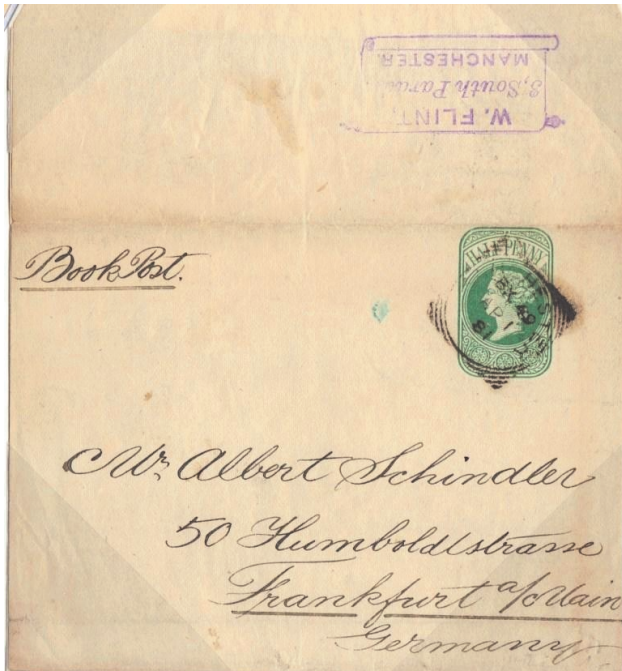 W. FLINT.
South
MANCHESTER.
Book Post.
Mr. Albert Schindler
50 Humboldtstrasse
Frankfurt a/Main
Germany